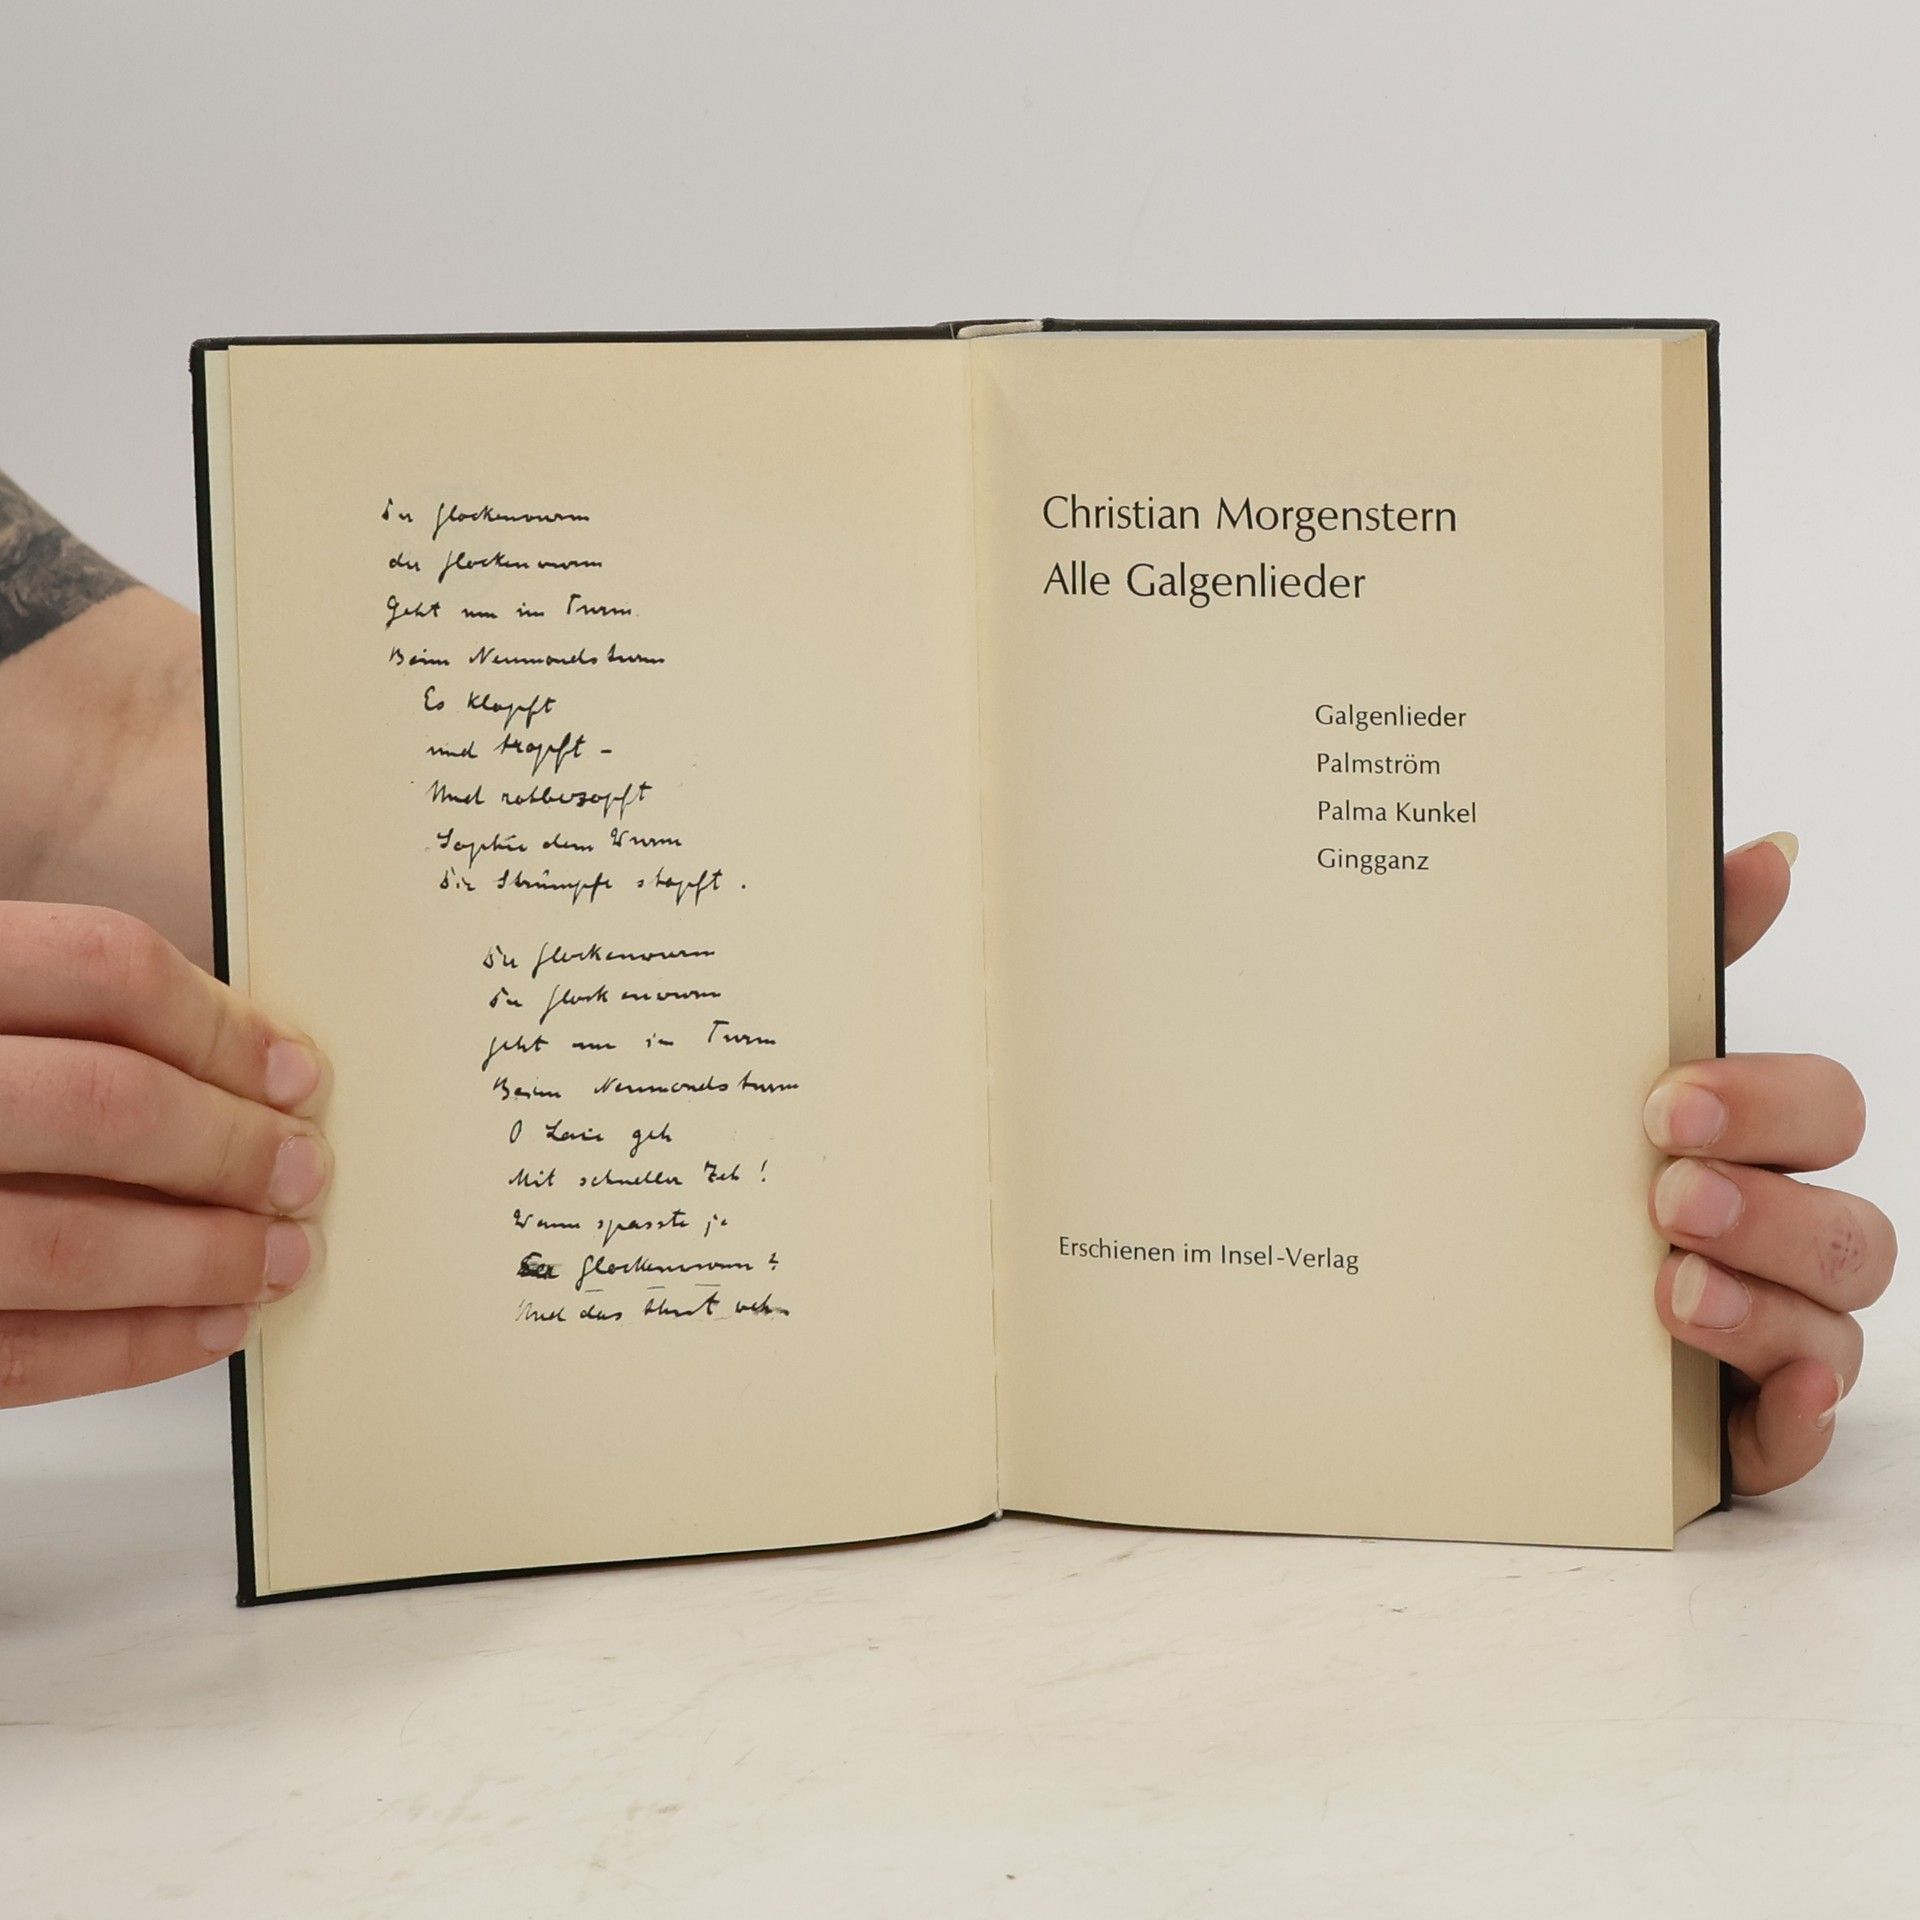 Der Glockenwurm
der Glockenwurm
Geht um im Turm
Beim Neumondsturm
Es klopft
und tropft –
Und rotbezopft
Sophie dem Wurm
Die Strümpfe stopft .
Der Glockenwurm
Der Glockenwurm
geht um im Turm
Beim Neumondsturm
O Laie geh
Mit schneller Zeh !
Wann spasste je
Der Glockenwurm ?
Und das thut weh
Christian Morgenstern
Alle Galgenlieder
Galgenlieder
Palmström
Palma Kunkel
Gingganz
Erschienen im Insel-Verlag